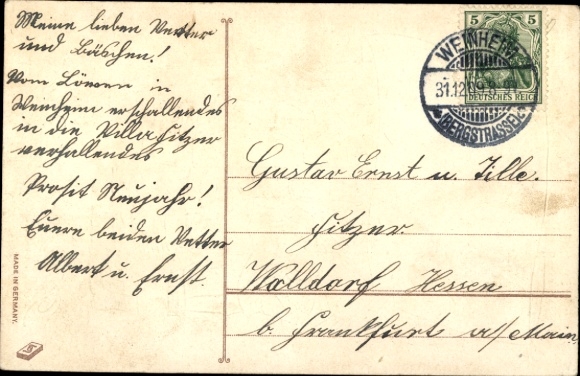 Meine lieben Vetter
und Bäschen!
Vom Löwen in
Weinheim erschallendes
in die Villa Fitzer
verhallendes
Prosit Neujahr!
Euere beiden Vetter
Albert u. Ernst.
MADE IN GERMANY.
5 5
DEUTSCHES REICH
WEINHEIM
31.12.09.8-9
(BERGSTRASSE)
Gustav Ernst u. Tille.
Fitzer
Walldorf Hessen
b. Frankfurt a/Main